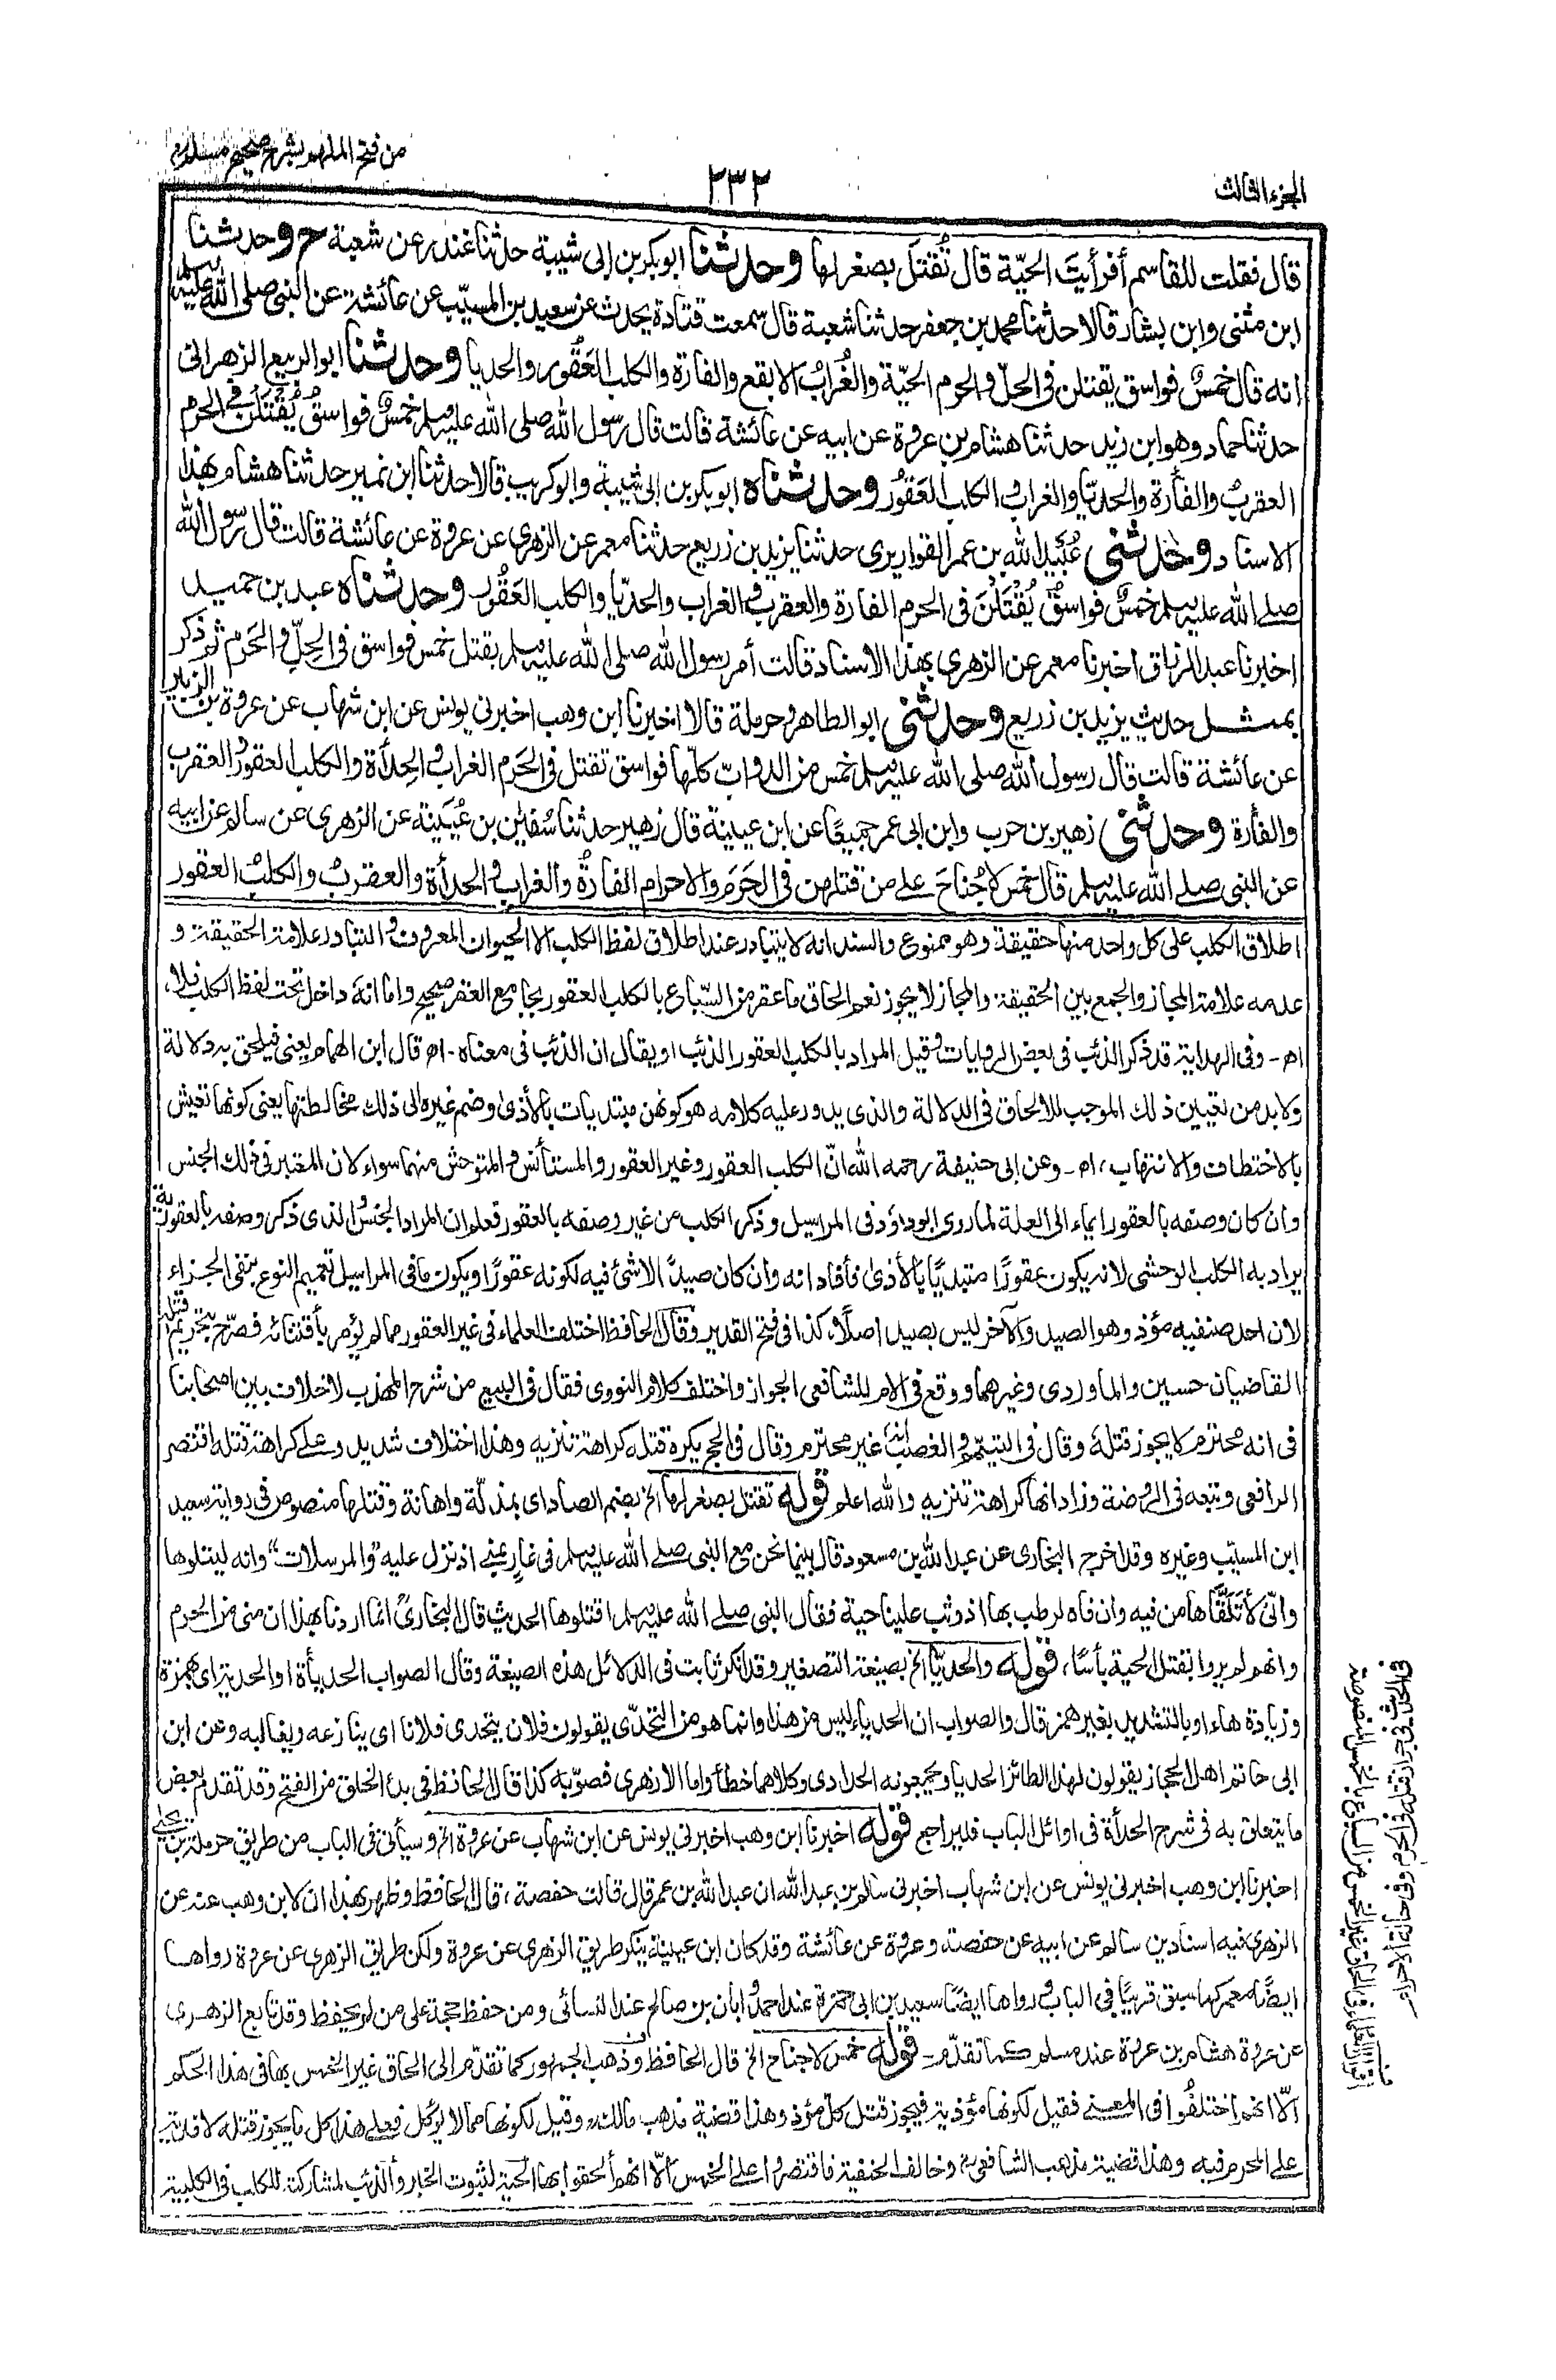 الجزء الثالث
٢٣٢
من فتح الملهم بشرح صحيح مسلم
قال فقلت للقاسم أفرأيتَ الحيّة قال تُقتَل بصغر لها وحدثنا ابوبكر بن ابى شيبة حدثنا غندر عن شعبة ح وحدثنا
ابن مثنى وابن بشار قالا حدثنا محمد بن جعفر حدثنا شعبة قال سمعت قتادة يحدث عن سعيد بن المسيّب عن عائشة عن النبى صلى الله عليه وسلم
انه قال خمسٌ فواسق يقتلن فى الحلّ والحرم الحيّة والغُرابُ الابقع والفارة والكلب العَقُور والحديا وحدثنا ابو الربيع الزهرانى
حدثنا حماد وهو ابن زيد حدثنا هشام بن عروة عن ابيه عن عائشة قالت قال رسول الله صلى الله عليه وسلم خمسٌ فواسقُ يُقْتَلْنَ فى الحرم
العقربُ والفأرة والحديّا والغراب والكلب العَقُور وحدثناه ابوبكر بن ابى شيبة وابو كريب قالا حدثنا ابن نمير حدثنا هشام بهذا
الاسناد وحدثنى عُبَيد الله بن عمر القواريرى حدثنا يزيد بن زريع حدثنا معمر عن الزهرى عن عروة عن عائشة قالت قال رسول الله
صلى الله عليه وسلم خمسٌ فواسقُ يُقْتَلْنَ فى الحرم الفارة والعقرب والغراب والحديّا والكلب العَقُور وحدثناه عبد بن حميد
اخبرنا عبد الرزاق اخبرنا معمر عن الزهرى بهذا الاسناد قالت أمر رسول الله صلى الله عليه وسلم بقتل خمس فواسق فى الحِلّ والحَرَم ثم ذكر
بمثل حديث يزيد بن زريع وحدثنى ابو الطاهر وحرملة قالا اخبرنا ابن وهب اخبرنى يونس عن ابن شهاب عن عروة بن الزبير
عن عائشة قالت قال رسول الله صلى الله عليه وسلم خمس من الدوابّ كلّها فواسق تقتل فى الحَرَم الغراب والحِدأة والكلب العقور والعقرب
والفأرة وحدثنى زهير بن حرب وابن ابى عمر جميعًا عن ابن عيينة قال زهير حدثنا سُفيٰن بن عُيَينة عن الزهرى عن سالم عن ابيه
عن النبى صلى الله عليه وسلم قال خمس لا جُناحَ على من قتلهن فى الحَرَم والاحرام الفارةُ والغراب والحدأة والعقربُ والكلبُ العقور
اطلاق الكلب على كل واحد منها حقيقة وهو ممنوع والسند انه لا يتبادر عند اطلاق لفظ الكلب الا الحيوان المعروف والتبادر علامة الحقيقة و
عدمه علامة المجاز والجمع بين الحقيقة والمجاز لا يجوز نعم الحاق ما عقر من السّباع بالكلب العقور بجامع العقر صحيح واما انه داخل تحت لفظ الكلب فلا،
اهـ - وفى الهداية قد ذكر الذئب فى بعض الروايات وقيل المراد بالكلب العقور الذئب او يقال ان الذئب فى معناه - اهـ قال ابن الهمام يعنى فيلحق به دلالة
ولا بد من تعيين ذلك الموجب للالحاق فى الدلالة والذى يدور عليه كلامه هو كونهن مبتديات بالأذى وضم غيره الى ذلك مخالطتها يعنى كونها تعيش
بالاختطاف والانتهاب، اهـ - وعن ابى حنيفة رحمه الله انّ الكلب العقور وغير العقور والمستأنس والمتوحش منهما سواء لان المعتبر فى ذلك الجنس
وان كان وصفه بالعقور ايماء الى العلة لما روى ابو داؤد فى المراسيل وذكر الكلب من غير وصفه بالعقور فعلم ان المراد الجنسُ الذى ذكر وصفه بالعقورية
يراد به الكلب الوحشى لانه يكون عقورًا مبتديًا بالأذى فأفاد انه وان كان صيدًا لا شئ فيه لكونه عقورًا ويكون ما فى المراسيل تعميم النوع بنفى الجزاء
لان احد صنفيه مؤذ وهو الصيد والآخر ليس بصيد اصلًا، كذا فى فتح القدير وقال الحافظ اختلف العلماء فى غير العقور مما لم يؤمر باقتنائه فصرّح بتحريم قتله
القاضيان حسين والماوردى وغيرهما ووقع فى الام للشافعى الجواز واختلف كلام النووى فقال فى البيع من شرح المهذب لا خلاف بين اصحابنا
فى انه محترم لا يجوز قتله وقال فى التيمّم والغصب انه غير محترم وقال فى الحج يكره قتله كراهة تنزيه وهذا اختلاف شديد وعلى كراهة قتله اقتصر
الرافعى وتبعه فى الروضة وزاد انها كراهة تنزيه والله اعلم قوله تقتل بصغر لها الخ بضم الصاد اى بمذلّة واهانة وقتلها منصوص فى رواية سعيد
ابن المسيّب وغيره وقد اخرج البخارى عن عبد الله بن مسعود قال بينما نحن مع النبى صلى الله عليه وسلم فى غارٍ بمنى اذ نزل عليه "والمرسلات" وانه ليتلوها
وانّى لأتَلَقَّاها من فيه وان فاه لرطب بها اذ وثب علينا حية فقال النبى صلى الله عليه وسلم اقتلوها الحديث قال البخارىّ انما اردنا بهذا ان منى من الحرم
وانهم لم يروا بقتل الحية بأسًا، قوله والحديّا الخ بصيغة التصغير وقد انكر ثابت فى الدلائل هذه الصيغة وقال الصواب الحديأة او الحدية اى بهمزة
وزيادة هاء او بالتشديد بغير همز قال والصواب ان الحدياء ليس من هذا وانما هو من التحدّى يقولون فلان يتحدى فلانا اى ينازعه ويغالبه وعن ابن
ابى حاتم اهل الحجاز يقولون لهذا الطائر الحديا ويجمعونه الحدادى وكلاهما خطأ واما الازهرى فصوّبه كذا قال الحافظ فى بدء الخلق من الفتح وقد تقدم بعض
ما يتعلق به فى شرح الحدأة فى اوائل الباب فليراجع قوله اخبرنا ابن وهب اخبرنى يونس عن ابن شهاب عن عروة الخ وسيأتى فى الباب من طريق حرملة بن يحيى
اخبرنا ابن وهب اخبرنى يونس عن ابن شهاب اخبرنى سالم بن عبد الله ان عبد الله بن عمر قال قالت حفصة، قال الحافظ وظهر بهذا ان لابن وهب عنه عن
الزهرى فيه اسنادين سالم عن ابيه عن حفصة، وعروة عن عائشة وقد كان ابن عيينة ينكر طريق الزهرى عن عروة ولكن طريق الزهرى عن عروة رواها
ايضًا معمر كما سبق قريبًا فى الباب ورواها ايضًا سعيد بن ابى حمزة عند احمد وابان بن صالح عند النسائى ومن حفظ حجة على من لم يحفظ وقد تابع الزهرى
عن عروة هشام بن عروة عند مسلم كما تقدّم - قوله خمس لا جناح الخ قال الحافظ وذهب الجمهور كما تقدّم الى الحاق غير الخمس بها فى هذا الحكم
الّا انهم اختلفُوا فى المعنى فقيل لكونها مؤذية فيجوز قتل كل مؤذ وهذا قضية مذهب مالك، وقيل لكونها مما لا يوكل فعلى هذا كل ما يجوز قتله لا فدية
على المحرم فيه وهذا قضية مذهب الشافعىؒ وخالف الحنفية فاقتصروا على الخمس الّا انهم ألحقوا بها الحية لثبوت الخبر والذئب لمشاركته للكلب فى الكلبية
اقوال العلماء فى الحاق غير الخمس من السباع بالخمس المنصوصة
فى الحديث فى جواز قتله فى الحرم وفى حالة الاحرام